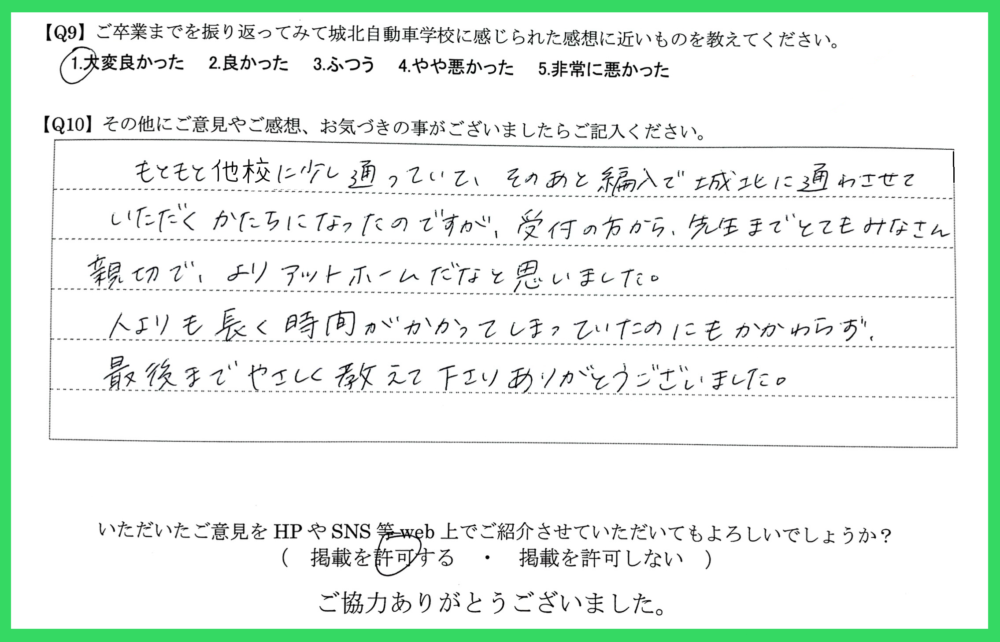 【Q9】ご卒業までを振り返ってみて城北自動車学校に感じられた感想に近いものを教えてください。
1.大変良かった 2.良かった 3.ふつう 4.やや悪かった 5.非常に悪かった
【Q10】その他にご意見やご感想、お気づきの事がございましたらご記入ください。
もともと他校に少し通っていて、そのあと編入で城北に通わさせて
いただくかたちになったのですが、受付の方から、先生までとてもみなさん
親切で、よりアットホームだなと思いました。
人よりも長く時間がかかってしまっていたのにもかかわらず、
最後までやさしく教えて下さりありがとうございました。
いただいたご意見をHPやSNS等web上でご紹介させていただいてもよろしいでしょうか?
( 掲載を許可する ・ 掲載を許可しない )
ご協力ありがとうございました。